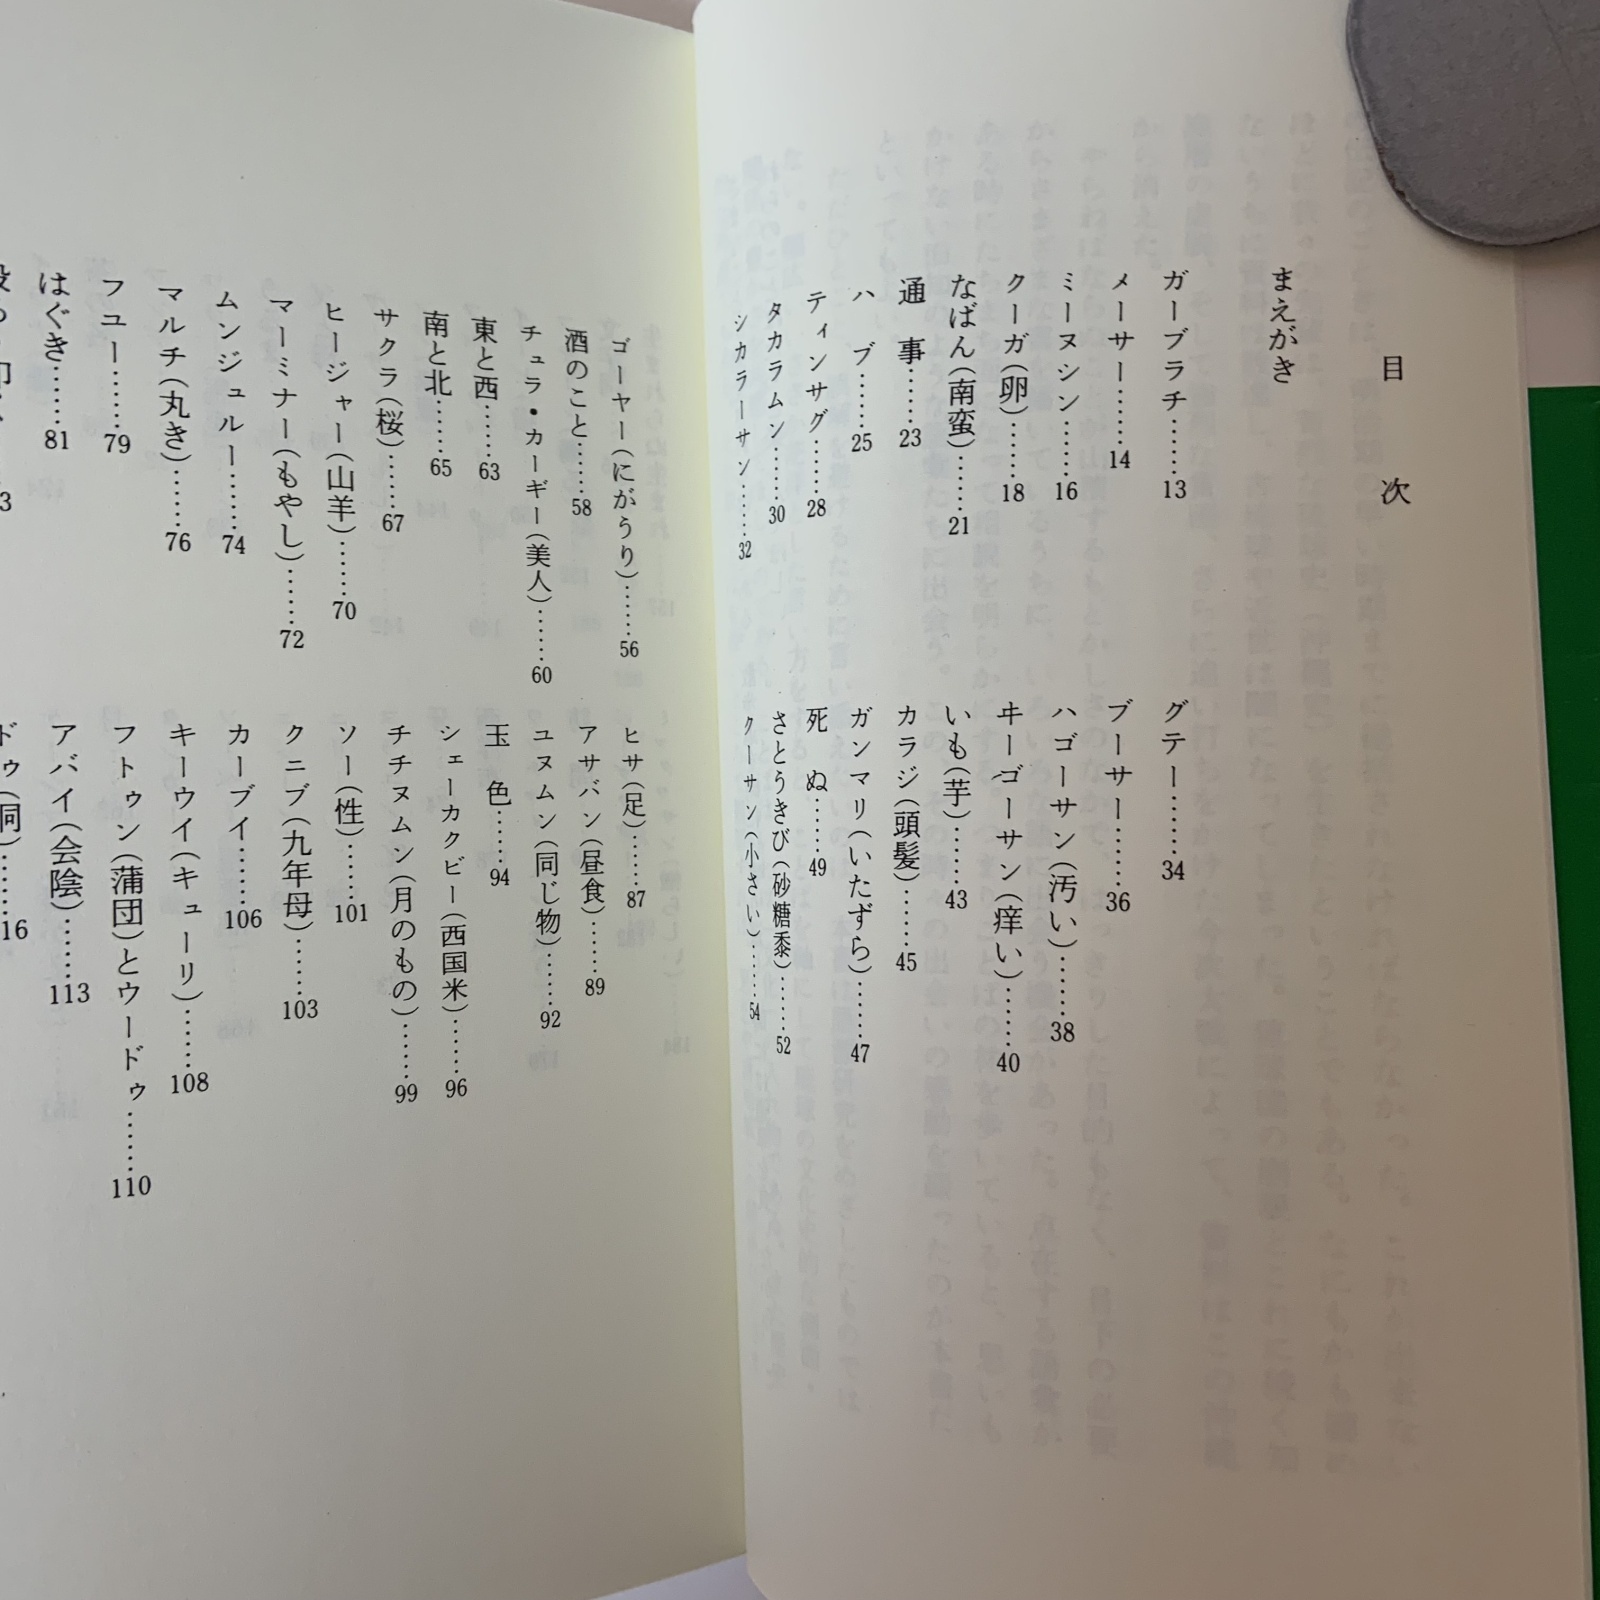 目次
まえがき
ガーブラチ……13
メーサー……14
ミーヌシン……16
クーガ(卵)……18
なばん(南蛮)……21
通事……23
ハブ……25
ティンサグ……28
タカラムン……30
シカラーサン……32
グテー……34
ブーサー……36
ハゴーサン(汚い)……38
ヰーゴーサン(痒い)……40
いも(芋)……43
カラジ(頭髪)……45
ガンマリ(いたずら)……47
死ぬ……49
さとうきび(砂糖黍)……52
クーサン(小さい)……54
ゴーヤー(にがうり)……56
酒のこと……58
チュラ・カーギー(美人)……60
東と西……63
南と北……65
サクラ(桜)……67
ヒージャー(山羊)……70
マーミナー(もやし)……72
ムンジュルー……74
マルチ(丸き)……76
フユー……79
はぐき……81
ヒサ(足)……87
アサバン(昼食)……89
ユヌムン(同じ物)……92
玉色……94
シェーカクビー(西国米)……96
チチヌムン(月のもの)……99
ソー(性)……101
クニブ(九年母)……103
カーブイ……106
キーウイ(キューリ)……108
フトゥン(蒲団)とウードゥ……110
アバイ(会陰)……113